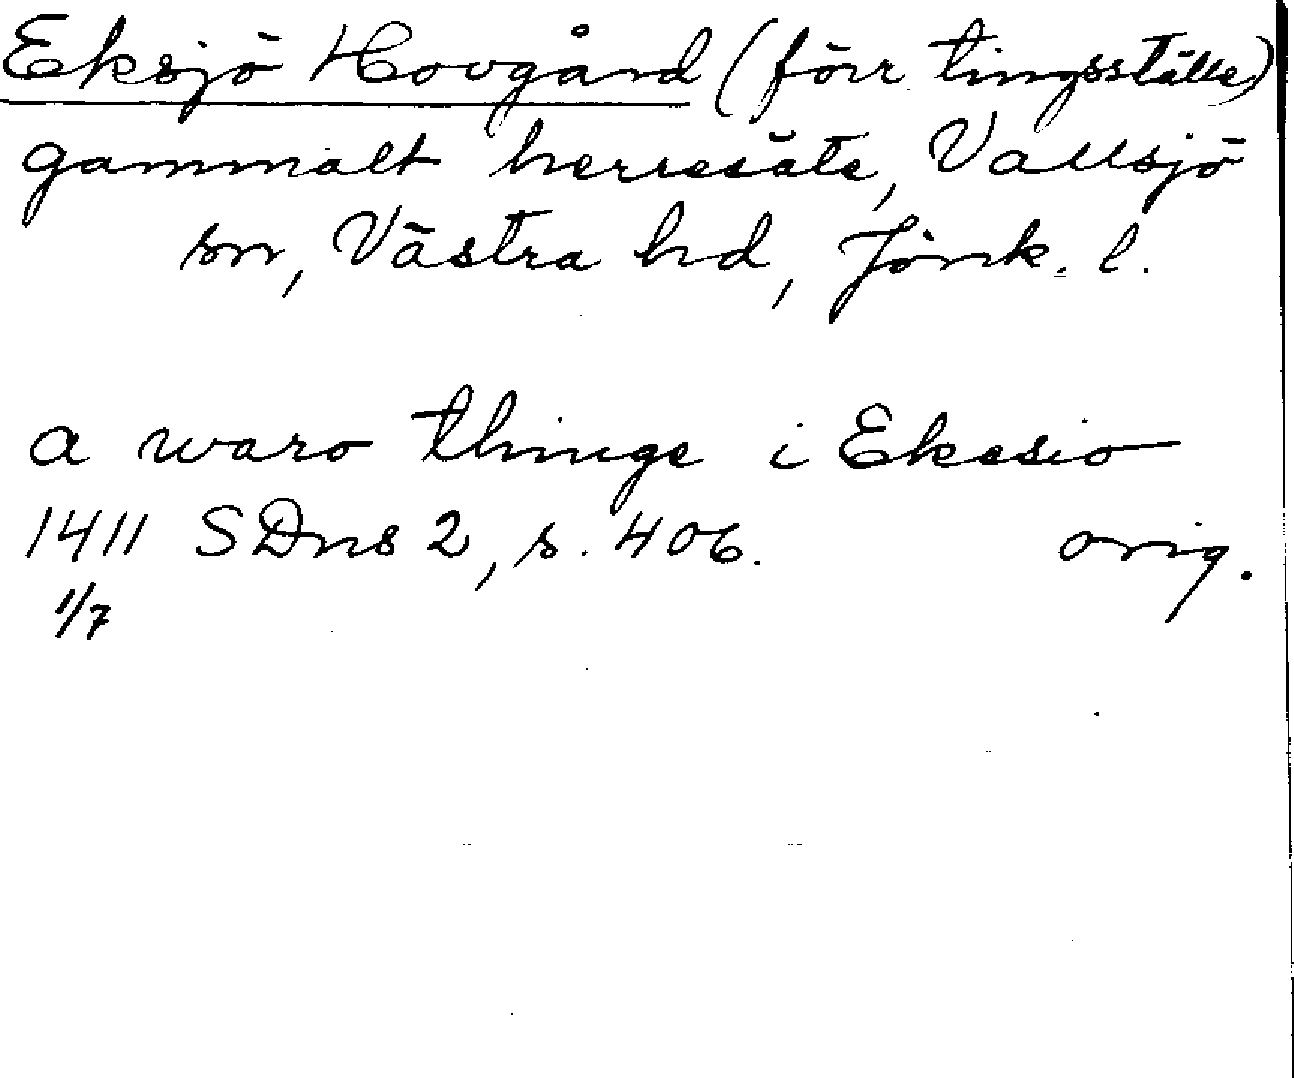 Eksjö Hovgård (förr tingsställe)
gammalt herresäte, Vallsjö
sn, Västra hd, Jönk. l.
a waro thinge i Ekesio
1411 SDns 2, s. 406. orig.
1/7